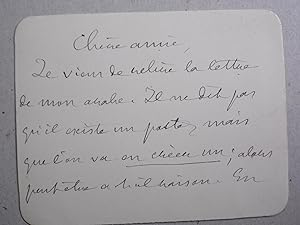 Chère amie,
Je viens de relire la lettre
de mon arabe. Il ne dit pas
qu'il existe un poste, mais
que l'on va en créer un ; alors
peut être a-t-il raison. En